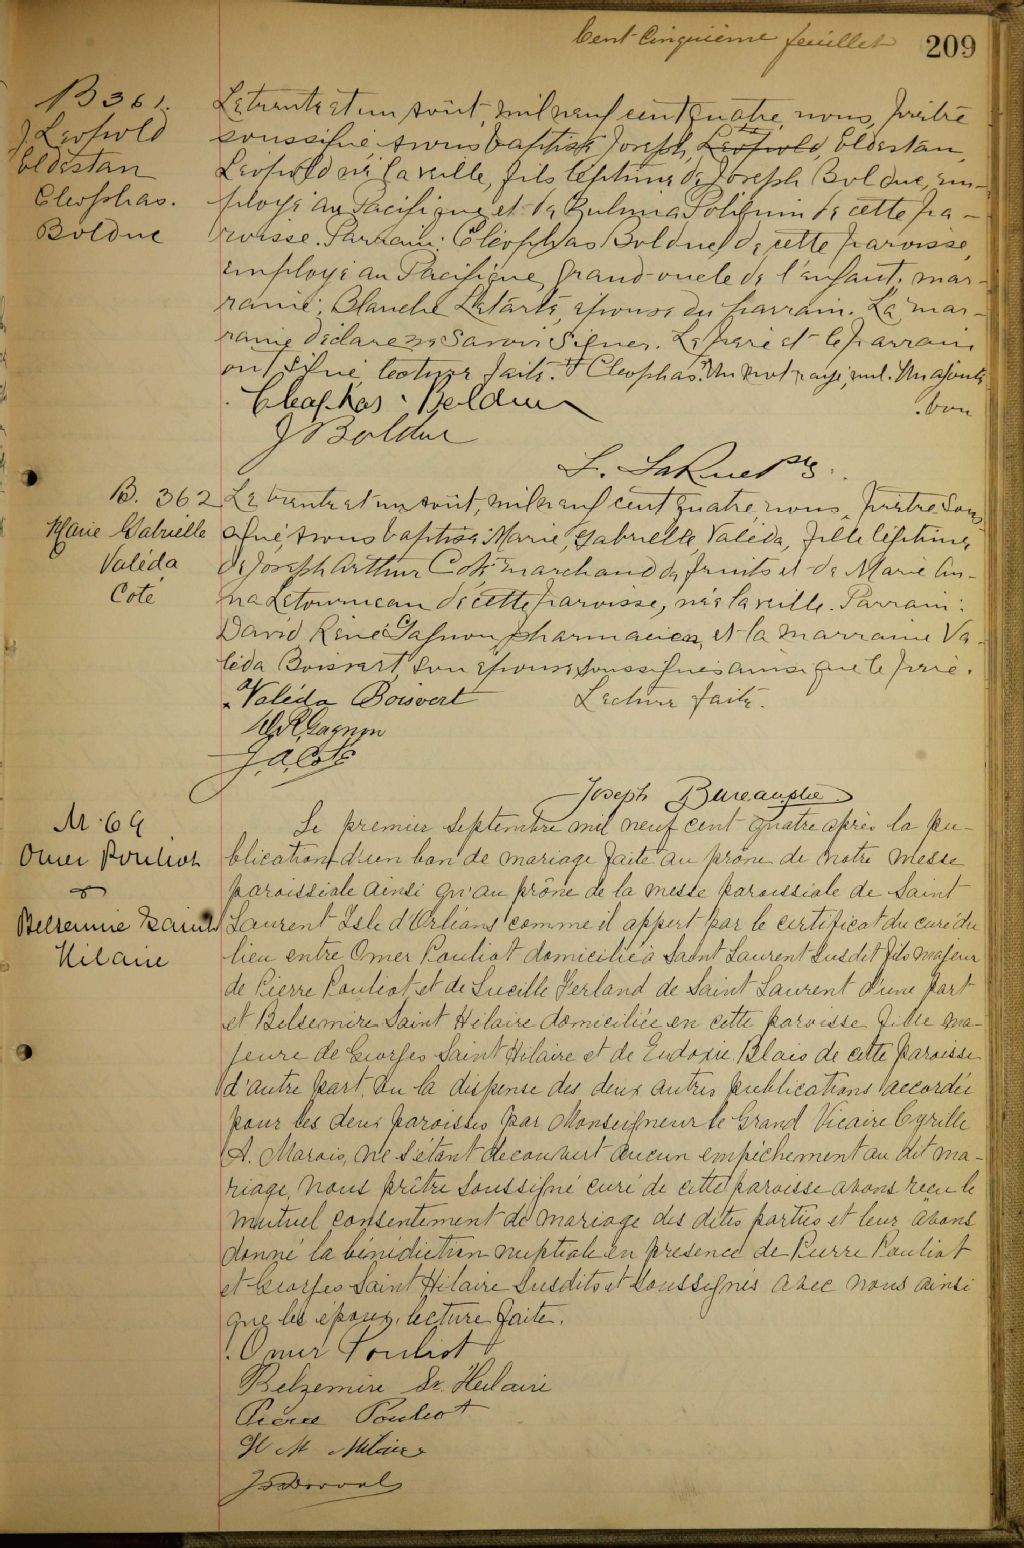 Cent Cinquième feuillet 209
B 361.
J. Leopold
Eldestan
Cleophas.
Bolduc
Le trente et un août, mil neuf cent quatre, nous, prêtre
soussigné avons baptisé Joseph, Leopold, Eldestan,
Leopold né la veille, fils légitime de Joseph Bolduc, em-
ployé au Pacifique et de Zulma Poliquin de cette pa-
roisse. Parrain: Cléophas Bolduc de cette paroisse,
employé au Pacifique, grand-oncle de l'enfant; mar-
raine: Blanche Letarte, épouse du parrain. La mar-
raine déclare ne savoir signer. Le père et le parrain
ont signé, lecture faite. + Cleophas. Un mot rayé, nul. Un ajouté
bon
Cleophas Bolduc
J Bolduc
L. LaRue ptre.
B. 362
Marie Gabrielle
Valéda
Coté
Le trente et un août, mil neuf cent quatre, nous, prêtre sous-
signé, avons baptisé Marie, Gabrielle, Valéda, fille légitime
de Joseph Arthur Coté marchand de fruits et de Marie An-
na Letourneau de cette paroisse, née la veille. Parrain:
David René Gagnon, pharmacien, et la marraine Va-
léda Boisvert, son épouse, soussignés ainsi que le père.
Valéda Boisvert Lecture faite.
D. R. Gagnon
J. A. Coté
Joseph Bureau ptre
M. 69
Omer Pouliot
&
Belzemire Saint
Hilaire
Le premier Septembre mil neuf cent quatre après la pu-
blication d'un ban de mariage faite au prône de notre messe
paroissiale ainsi qu'au prône de la messe paroissiale de Saint
Laurent Isle d'Orléans comme il appert par le certificat du curé du
lieu entre Omer Pouliot domicilié à Saint Laurent susdit fils majeur
de Pierre Pouliot et de Lucille Ferland de Saint Laurent d'une part
et Belsemire Saint Hilaire domiciliée en cette paroisse fille ma-
jeure de Georges Saint Hilaire et de Eudoxie Blais de cette paroisse
d'autre part, vu la dispense des deux autres publications accordée
pour les deux paroisses par Monseigneur le Grand Vicaire Cyrille
A. Marois, ne s'étant decouvert aucun empêchement au dit ma-
riage, nous prêtre soussigné curé de cette paroisse avons reçu le
mutuel consentement de mariage des dites parties et leur avons
donné la bénédiction nuptiale en présence de Pierre Pouliot
et Georges Saint Hilaire susdits et soussignés avec nous ainsi
que les époux, lecture faite.
Omer Pouliot
Belzemire St. Hilaire
Pierre Pouliot
Hilaire